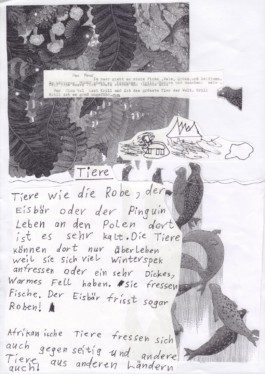 Tiere
Tiere wie die Robe, der
Eisbär oder der Pinguin
Leben an den Polen dort
ist es sehr kalt. Die Tiere
können dort nur überleben
weil sie sich viel Winterspek
anfressen oder ein sehr Dickes,
Warmes Fell haben. Sie fressen
Fische. Der Eisbär frisst sogar
Roben!
Afrikanische Tiere fressen sich
auch gegenseitig und andere
Tiere aus anderen Ländern
auch!